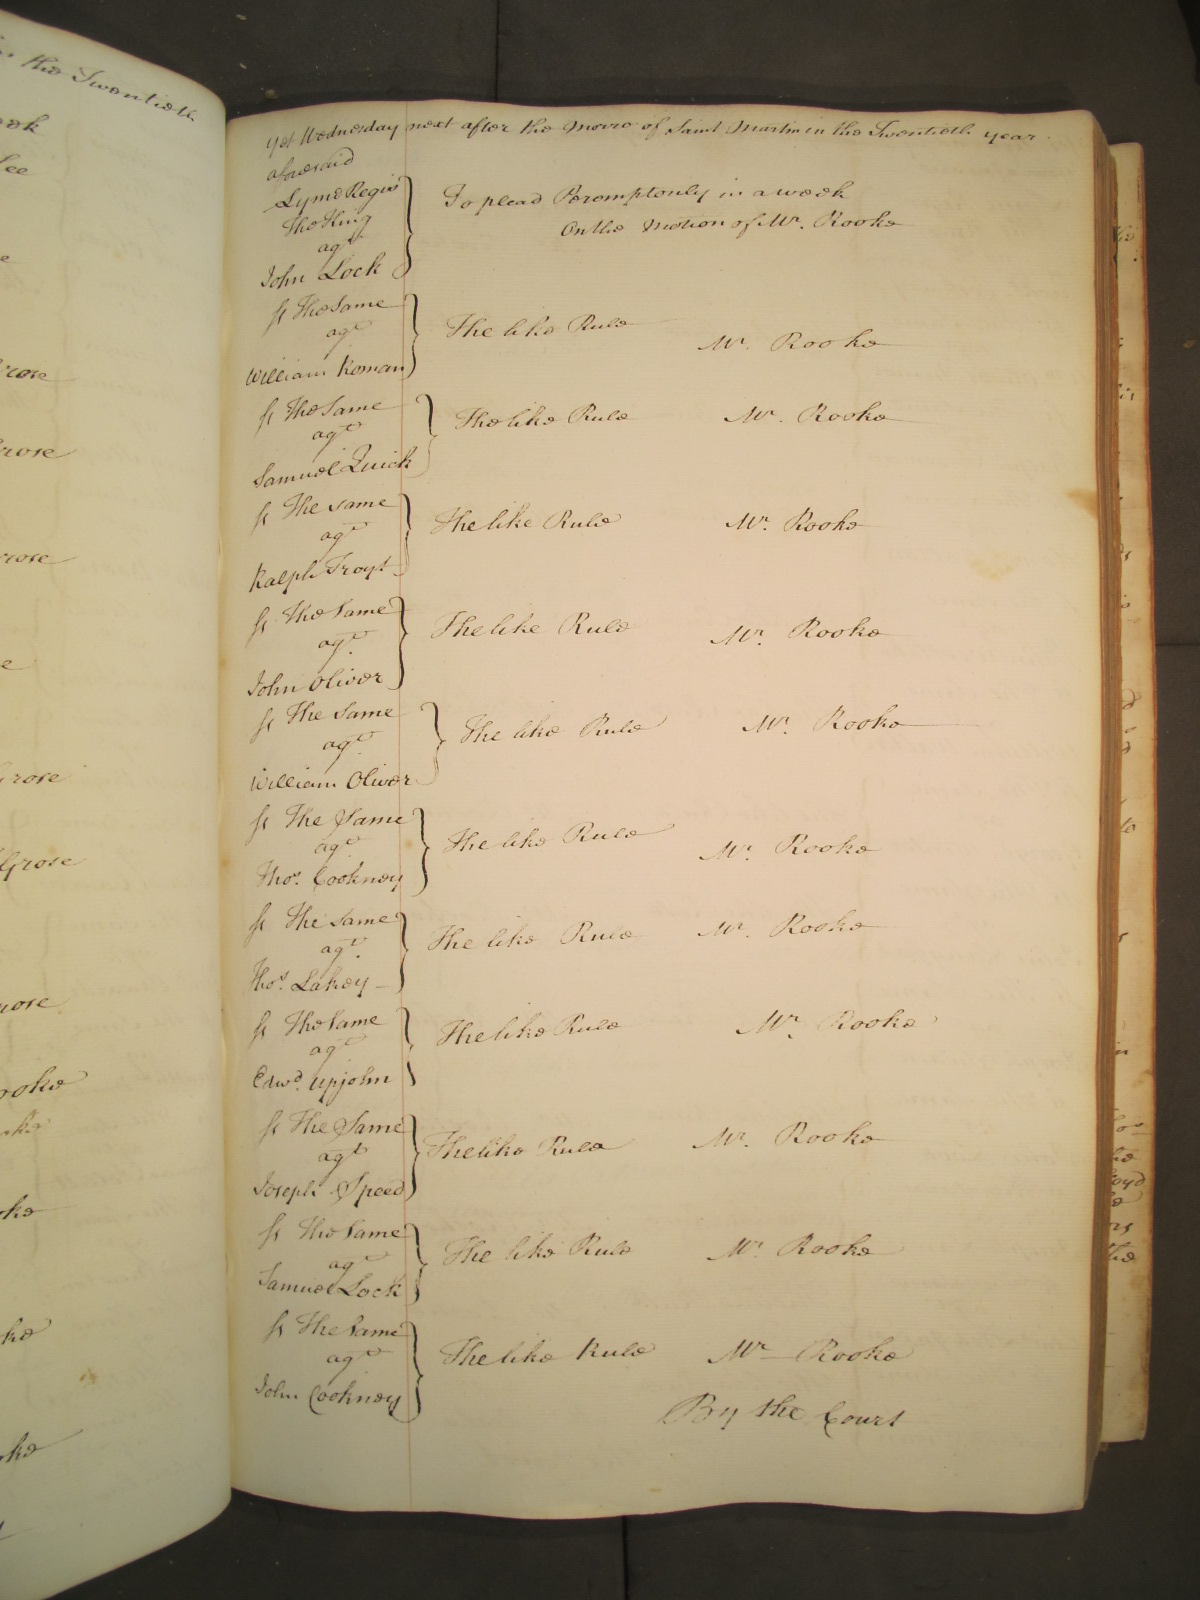 yet Wednesday next after the Morro of Saint Martin in the Twentieth year
aforesaid
Lyme Regis
The King
agt
John Lock
To plead Peremptorily in a week
On the Motion of Mr. Rooke
The Same
agt
William Roman
The like Rule Mr. Rooke
The Same
agt
Samuel Quick
The like Rule Mr. Rooke
The same
agt
Ralph Troyt
The like Rule Mr. Rooke
The Same
agt
John Oliver
The like Rule Mr. Rooke
The Same
agt
William Oliver
The like Rule Mr. Rooke
The Same
agt
Thos. Cookney
The like Rule Mr. Rooke
The same
agt
Thos. Lakey
The like Rule Mr. Rooke
The Same
agt
Edwd. Upjohn
The like Rule Mr. Rooke
The Same
agt
Joseph Speed
The like Rule Mr. Rooke
The Same
agt
Samuel Lock
The like Rule Mr. Rooke
The Same
agt
John Cookney
The like Rule Mr Rooke
By the Court